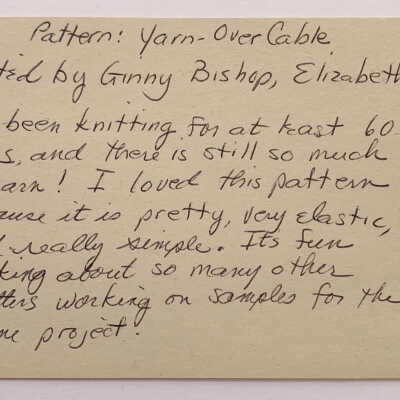 Pattern: Yarn-Over Cable
ted by Ginny Bishop, Elizabeth
been knitting for at least 60
s, and there is still so much
arn! I loved this pattern
ause it is pretty, very elastic,
really simple. Its fun
king about so many other
tters working on samples for the
me project.